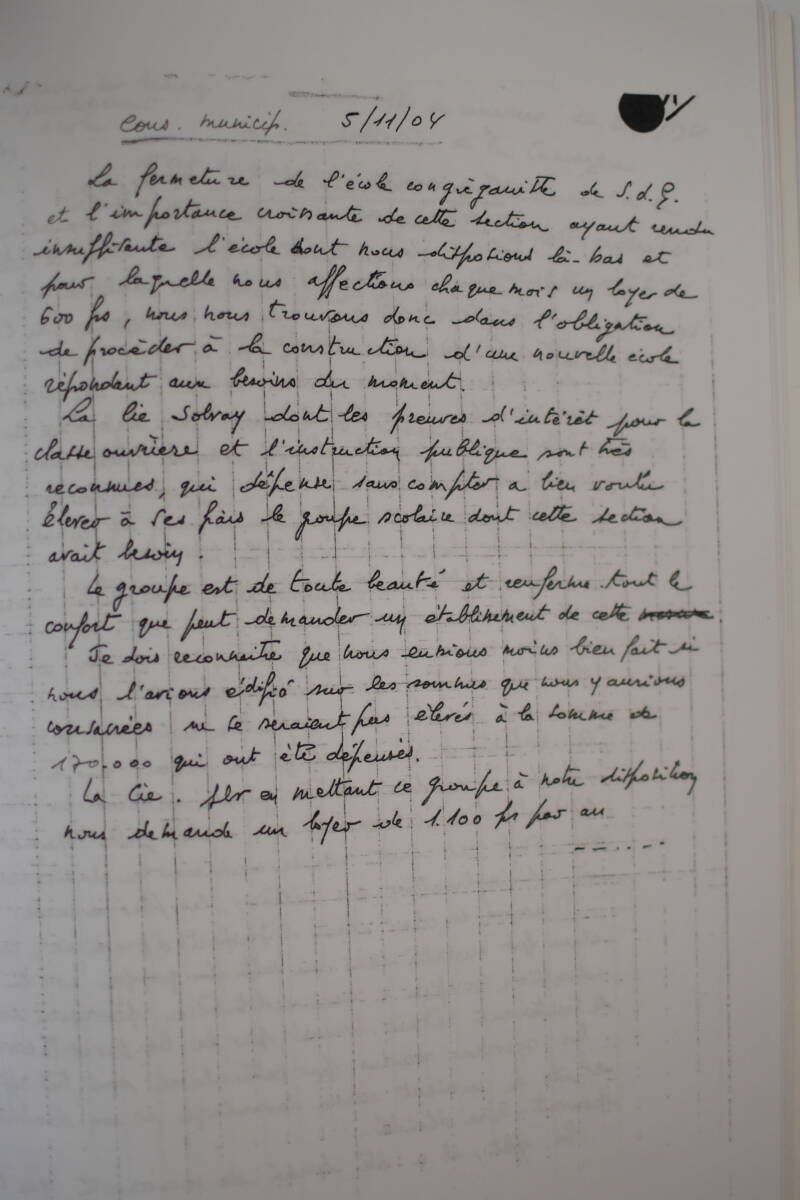 Cons. municip. 5/11/04
La fermeture de l'école congréganiste de S.d.G.
et l'importance croissante de cette section ayant rendu
insuffisante l'école dont nous disposions là-bas et
pour laquelle nous affections chaque mois un loyer de
600 frs, nous nous trouvons donc dans l'obligation
de procéder à la construction d'une nouvelle école
répondant aux besoins du moment.
La Cie Solvay dont les preuves d'intérêt pour la
classe ouvrière et l'instruction publique sont très
reconnues, qui dépense sans compter a bien voulu
élever à ses frais le groupe scolaire dont cette section
avait besoin.
Le groupe est de toute beauté et renferme tout le
confort que peut demander un établissement de cette
Je dois reconnaître que nous eussions moins bien fait si
nous l'avions édifié sur les sommes que nous y aurions
consacrées ne se seraient pas élevés à la somme de
170.000 qui ont été dépensés.
La Cie. en mettant ce groupe à notre disposition
nous demande un loyer de 1.100 frs par an
------